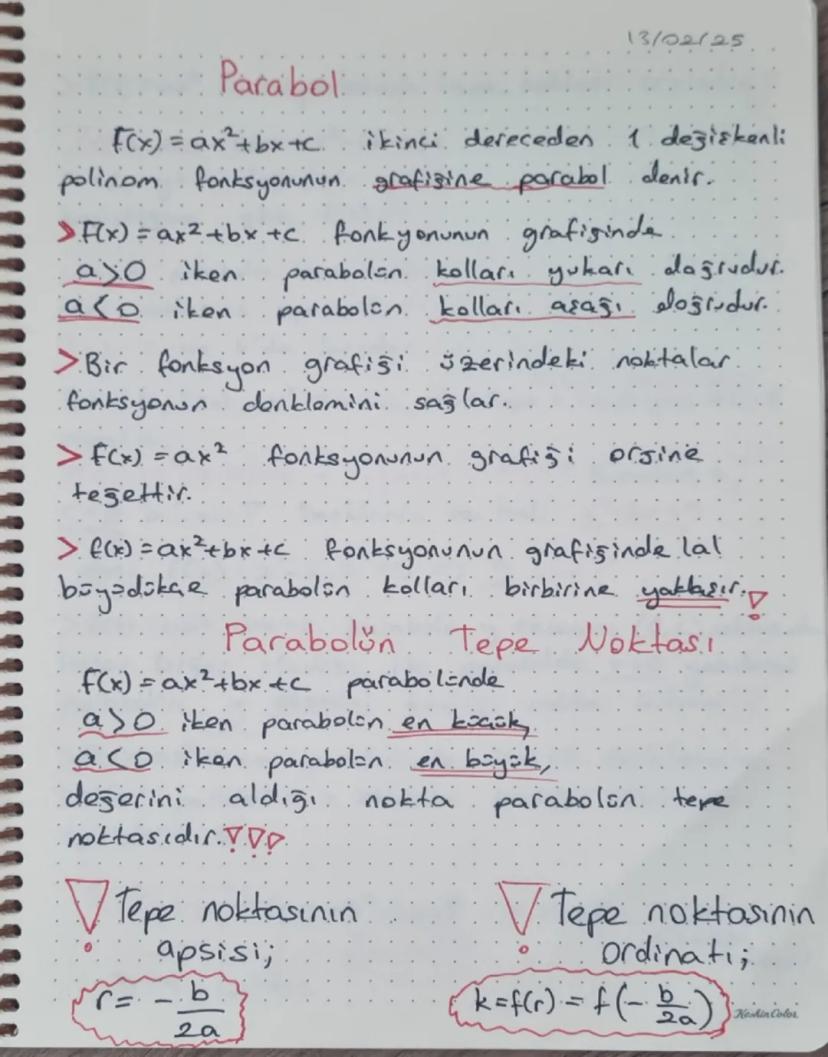 13/02/25
Parabol
f(x) = ax²+bx+c ikinci dereceden 1 değişkenli
polinom fonksyonunun grafiğine parabol denir.
> f(x) = ax²+bx+c fonkyonunun grafiğinde
a>0 iken parabolün kolları yukarı doğrudur.
a<0 iken parabolün kolları aşağı doğrudur.
> Bir fonksyon grafiği üzerindeki noktalar
fonksyonun donklomini sağlar.
> f(x) = ax² fonksyonunun grafiği orjine
teğettir.
> f(x) = ax²+bx+c fonksyonunun grafiğinde |a|
büyüdükçe parabolün kolları birbirine yaklaşır.!
Parabolün Tepe Noktası
f(x) = ax²+bx+c parabolünde
a>0 iken parabolün en küçük,
a<0 iken parabolün en büyük,
değerini aldığı nokta parabolün tepe
noktasıdır.▽▽▽
! Tepe noktasının
apsisi;
r = - b/2a
! Tepe noktasının
ordinatı;
k=f(r) = f(- b/2a)
KeskinColor